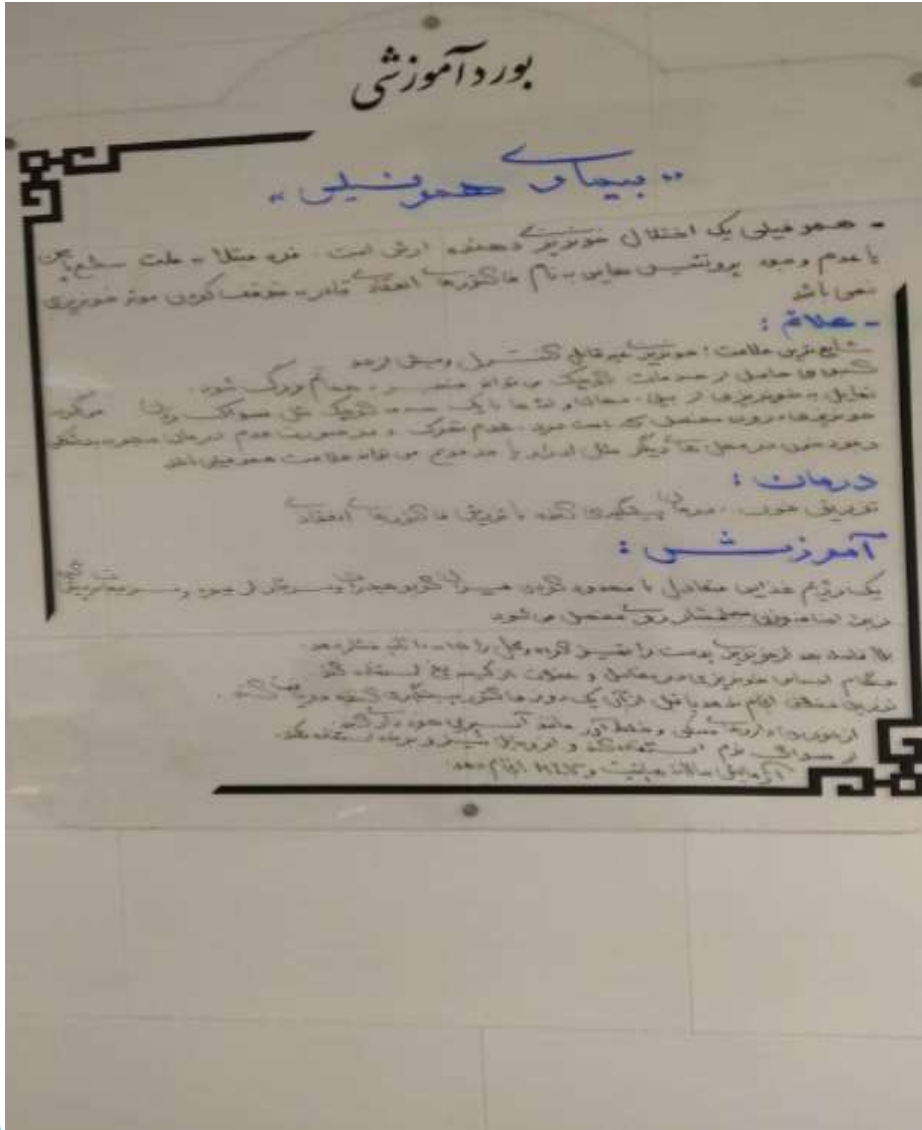 بورد آموزشی
"بیماری هموفیلی"
- هموفیلی یک اختلال خونریزی دهنده ارثی است. فرد مبتلا به علت سطح پایین
یا عدم وجود پروتئین هایی به نام فاکتورهای انعقادی قادر به متوقف کردن موثر خونریزی
نمی باشد
- علائم :
شایع ترین علامت : خونریزی غیر قابل کنترل و بیش از حد
کبودی حاصل از صدمات کوچک می تواند منجر به هماتوم بزرگ شود.
تمایل به خونریزی از بینی، دهان و لثه ها با یک صدمه کوچک مثل مسواک زدن
خونریزی درون مفصلی عدم تحرک در صورت عدم درمان منجر به
وجود خون در محل های دیگر مثل ادرار یا مدفوع می تواند علامت هموفیلی باشد
درمان :
تزریق خون، درمان پیشگیری کننده با تزریق فاکتورهای انعقادی
آموزش :
یک رژیم غذایی متعادل با محدود کردن میزان کربوهیدرات
زیرا اضافه وزن فشار روی مفصل می شود
بلافاصله بعد از خونریزی پوست را تمیز کرده و محل را ۱۵-۱۰ دقیقه فشار دهد.
هنگام احساس خونریزی در مفاصل و عضلات از کیسه یخ استفاده کند
از خوردن داروهای مسکن و ضد آور مانند آسپرین خودداری کند.
از مسواک نرم استفاده کند و از وسایل تیز و برنده استفاده نکند.
آزمایش سالانه هپاتیت و HIV انجام دهد.